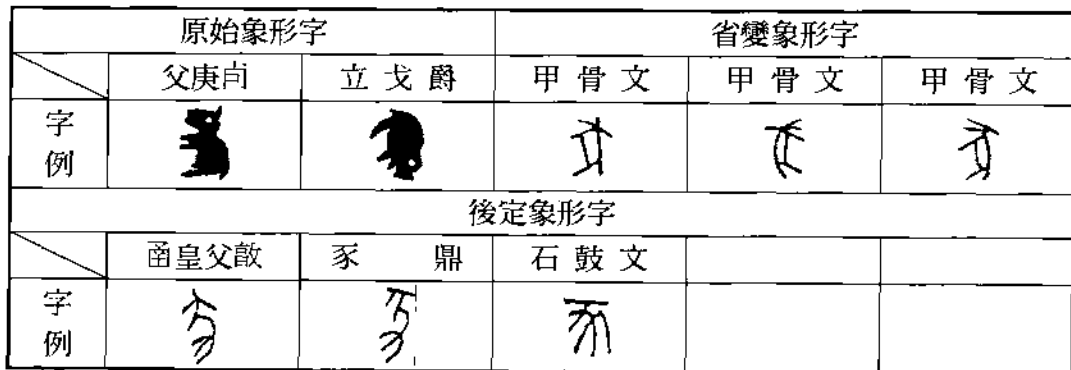 原始象形字 省變象形字
父庚卣 立戈爵 甲骨文 甲骨文 甲骨文
字例
後定象形字
圅皇父㪤 豕鼎 石鼓文
字例